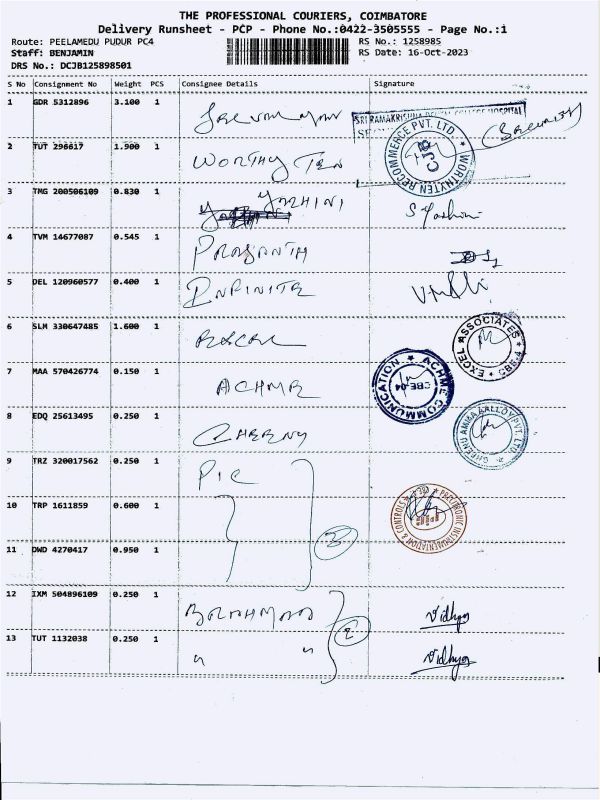 THE PROFESSIONAL COURIERS, COIMBATORE
Delivery Runsheet - PCP - Phone No.:0422-3505555 - Page No.:1
Route: PEELAMEDU PUDUR PC4 RS No.: 1258985
Staff: BENJAMIN RS Date: 16-Oct-2023
DRS No.: DCJB125898501
S No Consignment No Weight PCS Consignee Details Signature
1 GDR 5312896 3.100 1
SRI RAMAKRISHNA DENTAL COLLEGE HOSPITAL
2 TUT 298617 1.900 1 WORTHY TEN
WORTHYTEN RECOMMERCE PVT. LTD. CJB
3 TMG 200506109 0.830 1 YAZHINI
4 TVM 14677087 0.545 1 PRASANTH
5 DEL 120960577 0.400 1 INFINITE
6 SLM 330647485 1.600 1
EXCEL ASSOCIATES CBE-4
7 MAA 570426774 0.150 1 ACHME
ACHME COMMUNICATION CBE-04
8 EDQ 25613495 0.250 1
9 TRZ 320017562 0.250 1 PIC
10 TRP 1611859 0.600 1
PROCTRONIC INSTRUMENTATION & CONTROLS
11 DWD 4270417 0.950 1 3
12 IXM 504896109 0.250 1 Vidhya
13 TUT 1132038 0.250 1 " " 2 Vidhya